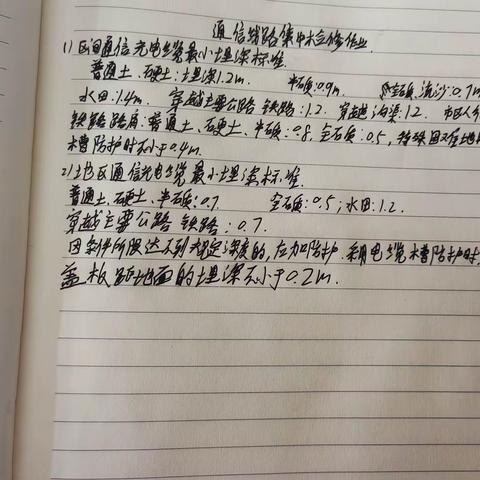 通信线路集中检修作业
1) 区间通信光电缆最小埋深标准
普通土、硬土:埋深1.2m. 半石质:0.9m. 全石质、流沙:0.7m
水田:1.4m. 穿越主要公路 铁路:1.2. 穿越沟渠:1.2 市区人
铁路路肩:普通土、硬土、半石质:0.8, 全石质:0.5, 特殊困难地
槽防护时不小于0.4m.
2) 站区通信光电缆最小埋深标准.
普通土、硬土、半石质:0.7 全石质:0.5; 水田:1.2.
穿越主要公路 铁路:0.7.
因条件所限达不到规定深度的, 应加防护. 采用电缆槽防护时,
盖板距地面的埋深不小于0.2m.